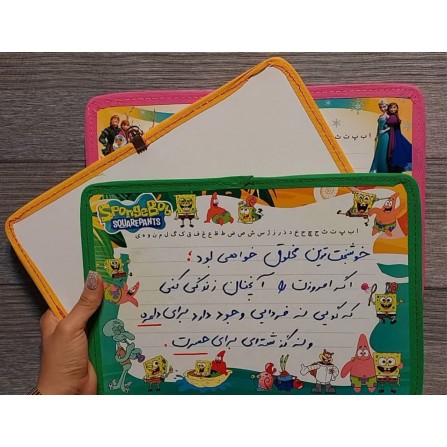 ا ب پ ت ث
SpongeBob
SQUAREPANTS
ا ب پ ت ث ج چ ح خ د ذ ر ز ژ س ش ص ض ط ظ ع غ ف ق ک گ ل م ن و ه ی
خوشبخت‌ترین مخلوق خواهی بود ؛
اگه امروزت را آنچنان زندگی کنی
که گویی نه فردایی وجود دارد برای دلهره
و نه گذشته‌ای برای حسرت .